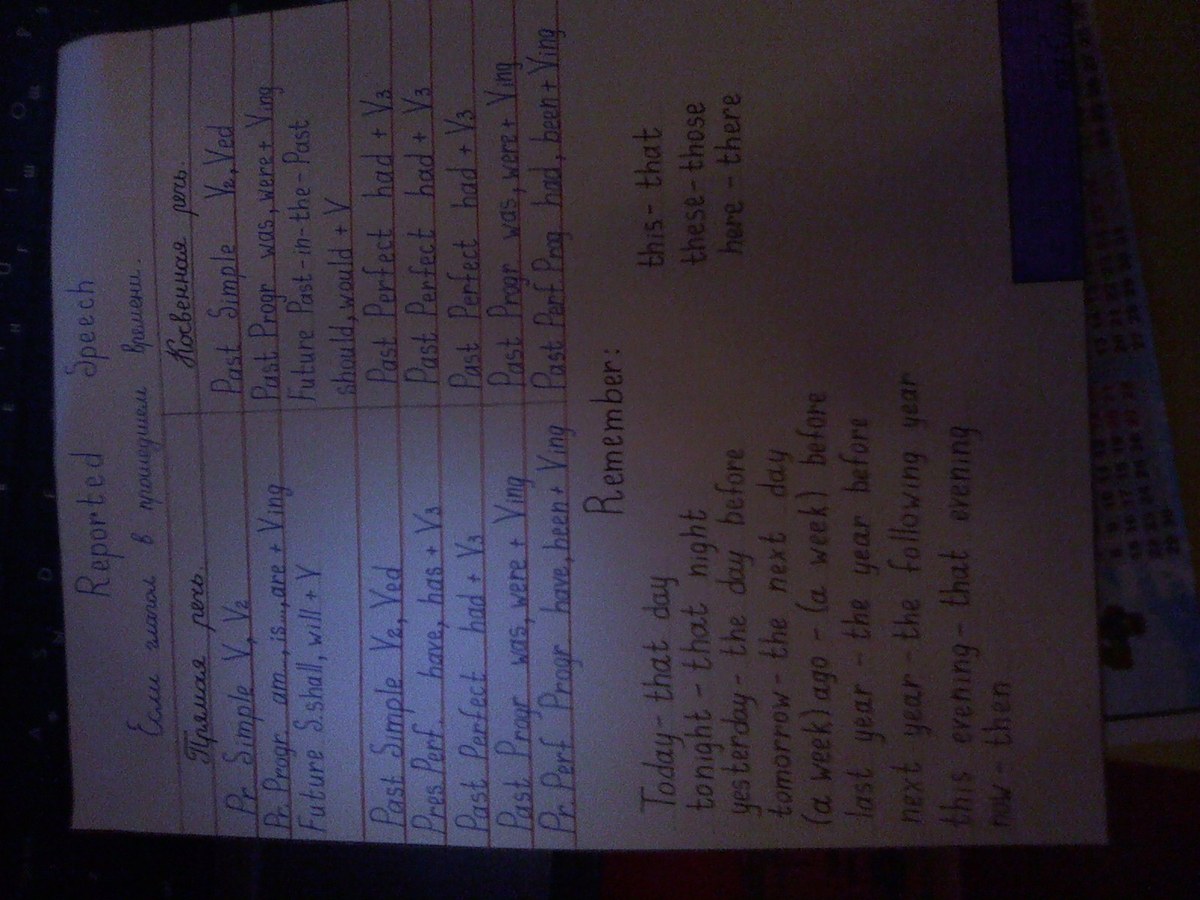 Reported Speech
Если глагол в прошедшем времени.
Прямая речь. Косвенная речь.
Pr Simple V, V2 Past Simple V2, Ved
Pr. Progr. am, is, are + Ving Past Progr was, were + Ving
Future S. shall, will + V Future Past-in-the-Past
should, would + V
Past Simple V2, Ved Past Perfect had + V3
Pres Perf. have, has + V3 Past Perfect had + V3
Past Perfect had + V3 Past Perfect had + V3
Past Progr was, were + Ving Past Progr was, were + Ving
Pr Perf Progr have, been + Ving Past Perf Prog had, been + Ving
Remember:
Today - that day this - that
tonight - that night these - those
yesterday - the day before here - there
tomorrow - the next day
(a week) ago - (a week) before
last year - the year before
next year - the following year
this evening - that evening
now - then